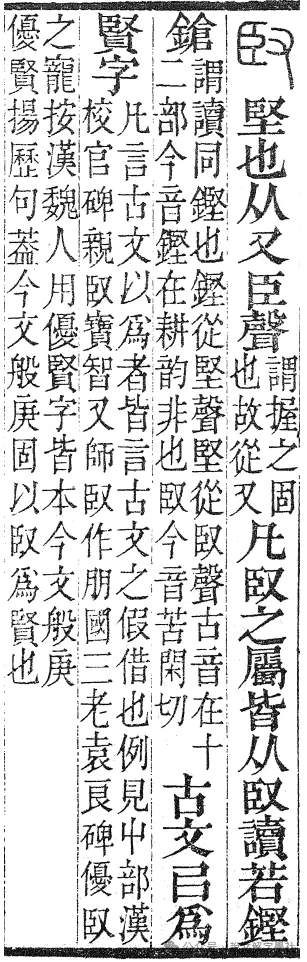 臤 堅也从又臣聲謂握之固也故從又凡臤之屬皆从臤讀若鏗
鎗謂讀同鏗也鏗從堅聲堅從臤聲古音在十二部今音鏗在耕韵非也臤今音苦閑切古文㠯爲
賢字凡言古文以爲者皆言古文之假借也例見屮部漢校官碑親臤寶智又師臤作朋國三老袁良碑優臤
之寵按漢魏人用優賢字皆本今文般庚優賢揚歷句葢今文般庚固以臤爲賢也